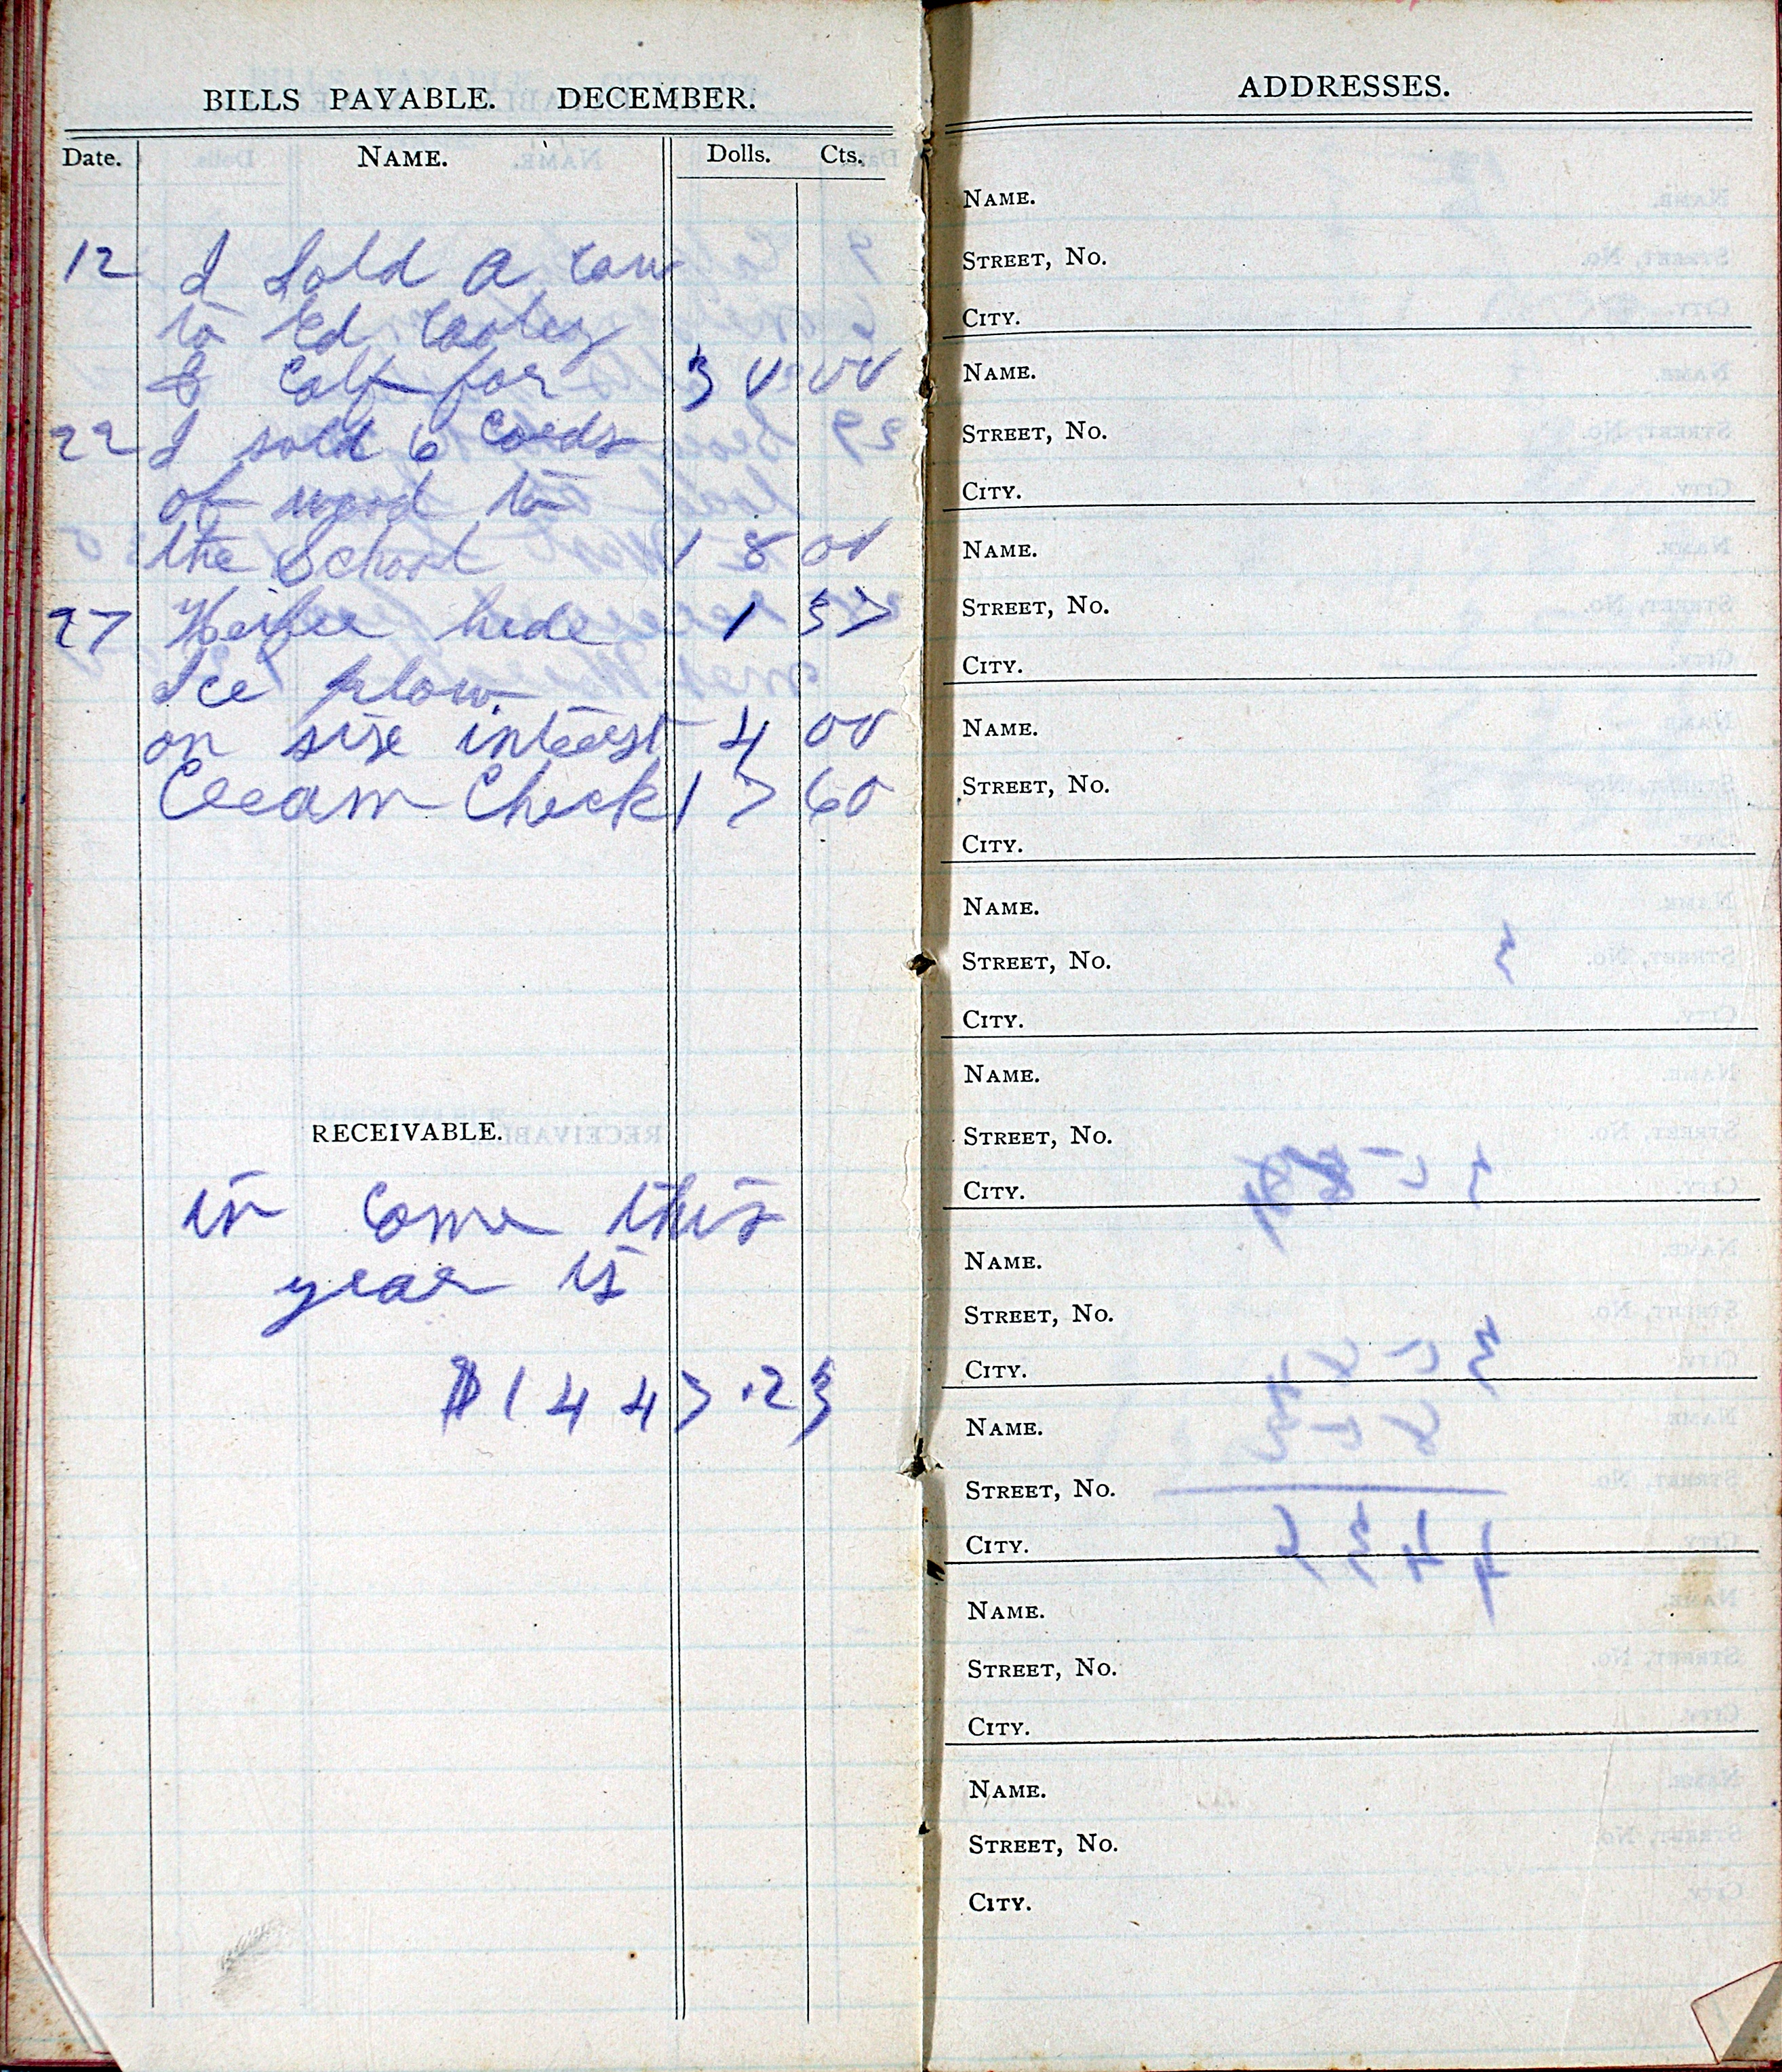 BILLS PAYABLE. DECEMBER.
Date. NAME. Dolls. Cts.
12 I sold a cow
to Ed Cooley
& Calf for 30 00
22 I sold 6 Cords
of wood to
the School 18 00
27 Heifer hide 1 37
Ice plow
on sise interest 4 00
Cream Check 17 60
RECEIVABLE.
in come this
year is
$1447.23
ADDRESSES.
NAME.
STREET, No.
CITY.
NAME.
STREET, No.
CITY.
NAME.
STREET, No.
CITY.
NAME.
STREET, No.
CITY.
NAME.
STREET, No.
CITY.
NAME.
STREET, No.
CITY.
NAME.
STREET, No.
CITY.
NAME.
STREET, No.
CITY.
NAME.
STREET, No.
CITY.
NAME.
STREET, No.
CITY.